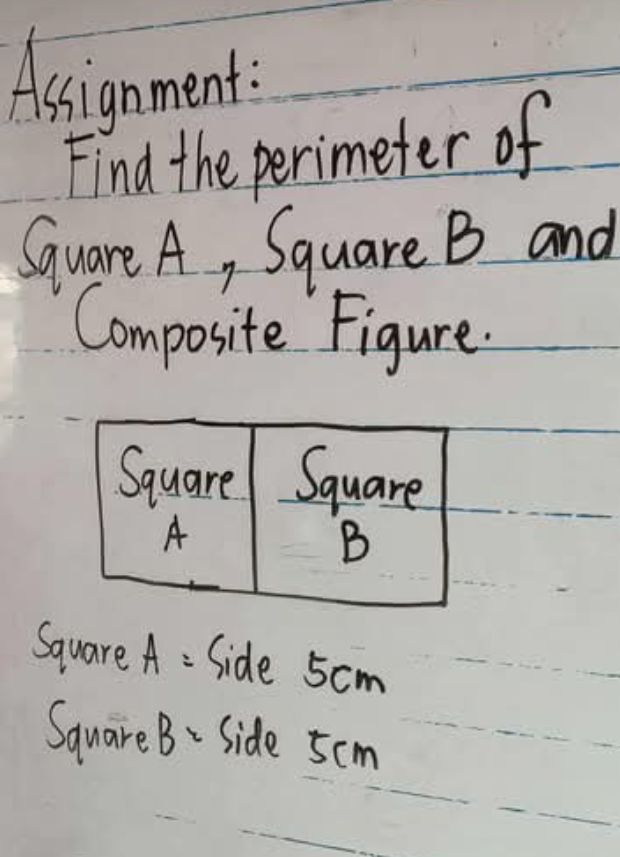 Assignment:
Find the perimeter of
Square A, Square B and
Composite Figure.
Square
A
Square
B
Square A = Side 5cm
Square B = Side 5cm